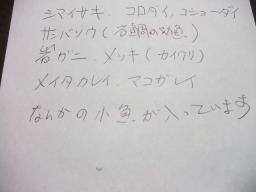 シマイサキ. コロダイ, コショーダイ
サンバソウ(石鯛の幼魚)
岩ガニ. メッキ(カイワリ)
メイタカレイ, マコガレイ
なんかの小魚が入っています